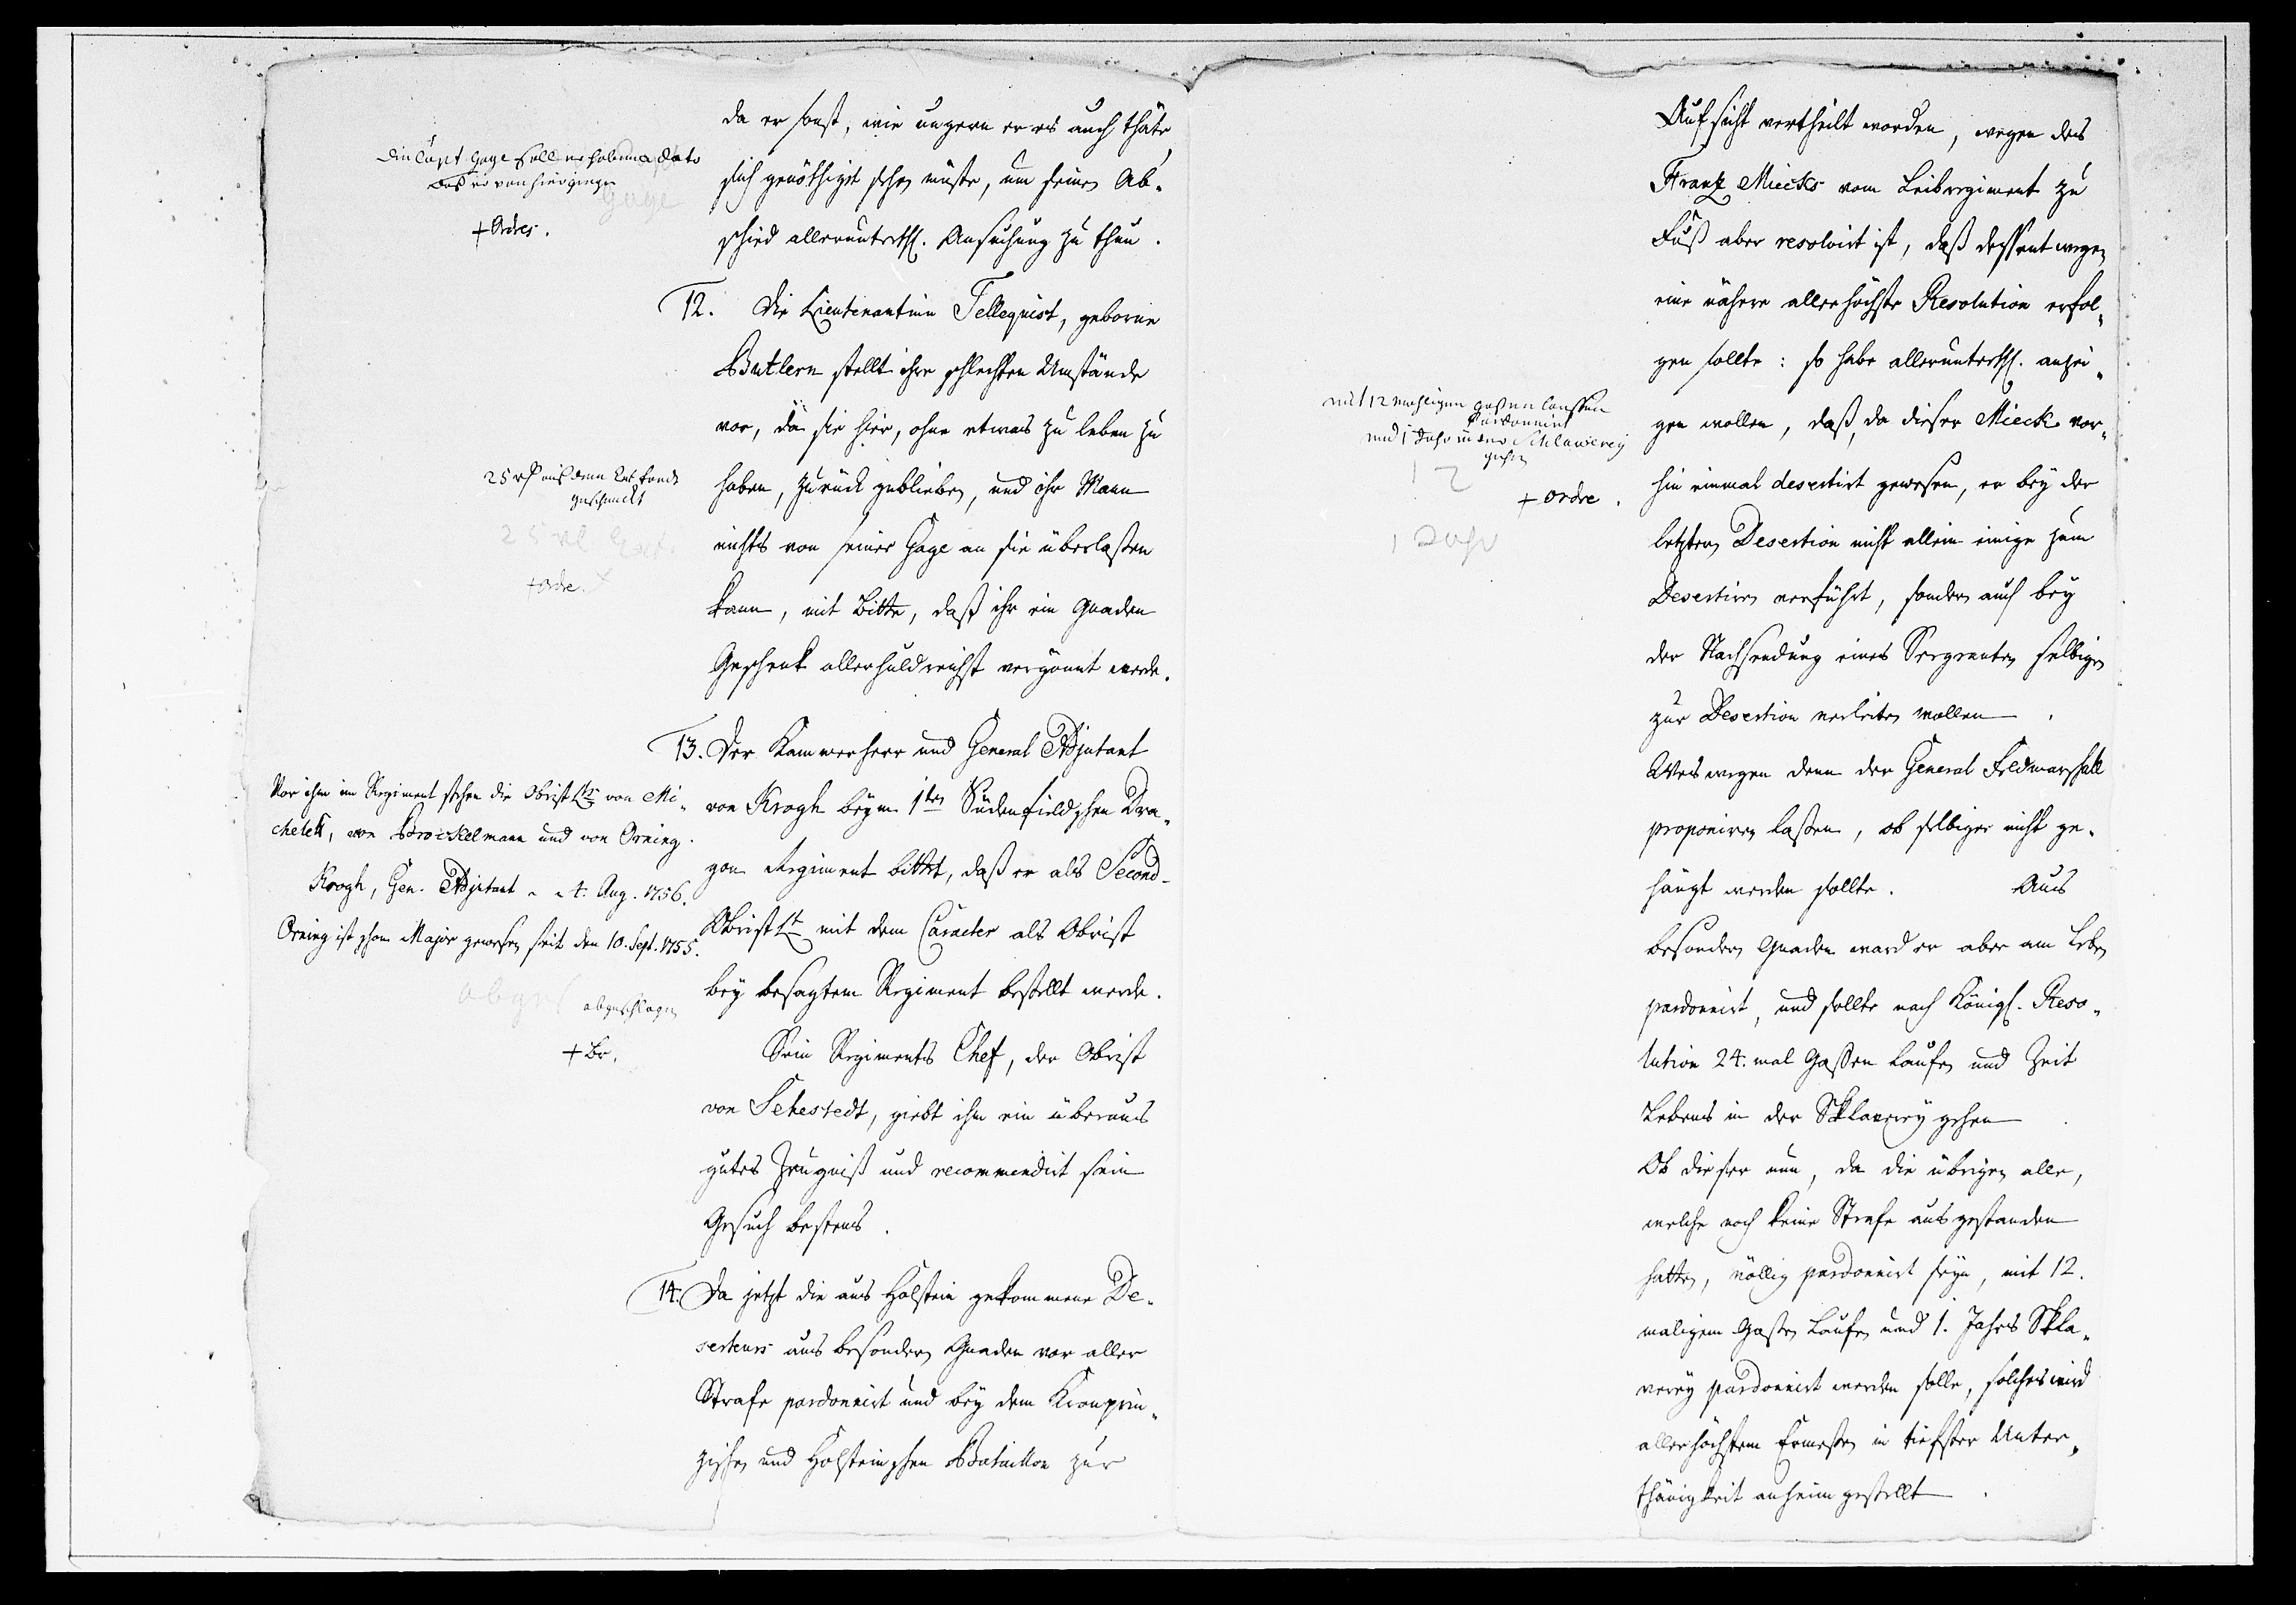 da er sonst, wie ungern er es auch thäte,
sich genöthigt sehen müste, um seinen Ab-
schied allerunterth. Ansuchung zu thun.
Die Capt Gage soll er haben a dato
das er von hier ginge
Gage
+ Ordres.
12. Die Lieutenantinn Tellequist, geborne
Butlern stellt ihre schlechten Umstände
vor, da sie hier, ohne etwas zu leben zu
haben, zurück geblieben, und ihr Mann
nichts von seiner Gage an sie überlaßen
kann, mit Bitte, daß ihr ein Gnaden
Geschenk allerhuldreichst vergönnt werde.
25 rh aus dem fonds
geschenckt
25 rl
+ Ordre.
13. Der Kammerherr und General Adjutant
von Krogh beym 1ten Südenfieldschen Dra-
goner Regiment bittet, daß er als Second-
Obristlt mit dem Caracter als Obrist
bey besagtem Regiment bestellt werde.
Vor ihm im Regiment stehen die Obristlts von Mi-
chelet, von Brockelmann und von Orning.
Krogh, Gen. Adjutant - 4. Aug. 1756.
Orning ist schon Major gewesen seit den 10. Sept. 1755.
abges
abgeschlagen
+ Br.
Sein Regiments Chef, der Obrist
von Sehestedt, giebt ihm ein überaus
gutes Zeugniß und recommendirt sein
Gesuch bestens.
14. Da jetzt die aus Holstein gekommene De-
serteurs aus besondern Gnaden vor aller
Strafe pardonnirt und bey dem Kronprin-
zischen und Holsteinschen Bataillon zur
Aufsicht vertheilt worden, wegen des
Frantz Miecks vom Leibregiment zu
Fuß aber resolvirt ist, daß dessentwegen
eine nähere allerhöchste Resolution erfol-
gen sollte: so habe allerunterth. anzei-
gen wollen, daß, da dieser Mieck vor-
hin einmal desertirt gewesen, er bey der
letztern Desertion nicht allein einige zum
Desertiren verführt, sondern auch bey
der Nachsendung eines Sergeanten selbigen
zur Desertion verleiten wollen.
Weswegen denn der General Feldmarschall
proponiren laßen, ob selbiger nicht ge-
hängt werden sollte. Aus
besondern Gnaden ward er aber am Leben
pardonnirt, und sollte nach Königl. Reso-
lution 24. mal Gassen Laufen und Zeit
Lebens in der Sklaverey gehen.
Ob dieser nun, da die übrigen alle,
welche noch keine Strafe ausgestanden
hatten, völlig pardonnirt seyn, mit 12.
maligem Gassen Laufen und 1. Jahrs Skla-
verey pardonnirt werden solle, solches wird
allerhöchstem Ermeßen in tiefster Unter-
thänigkeit anheim gestellt.
mit 12 mahligen gassen lauffen
pardonnirt
und 1 Jahr in der Schlawerey
gehen
12
+ Ordre.
1 Jahr